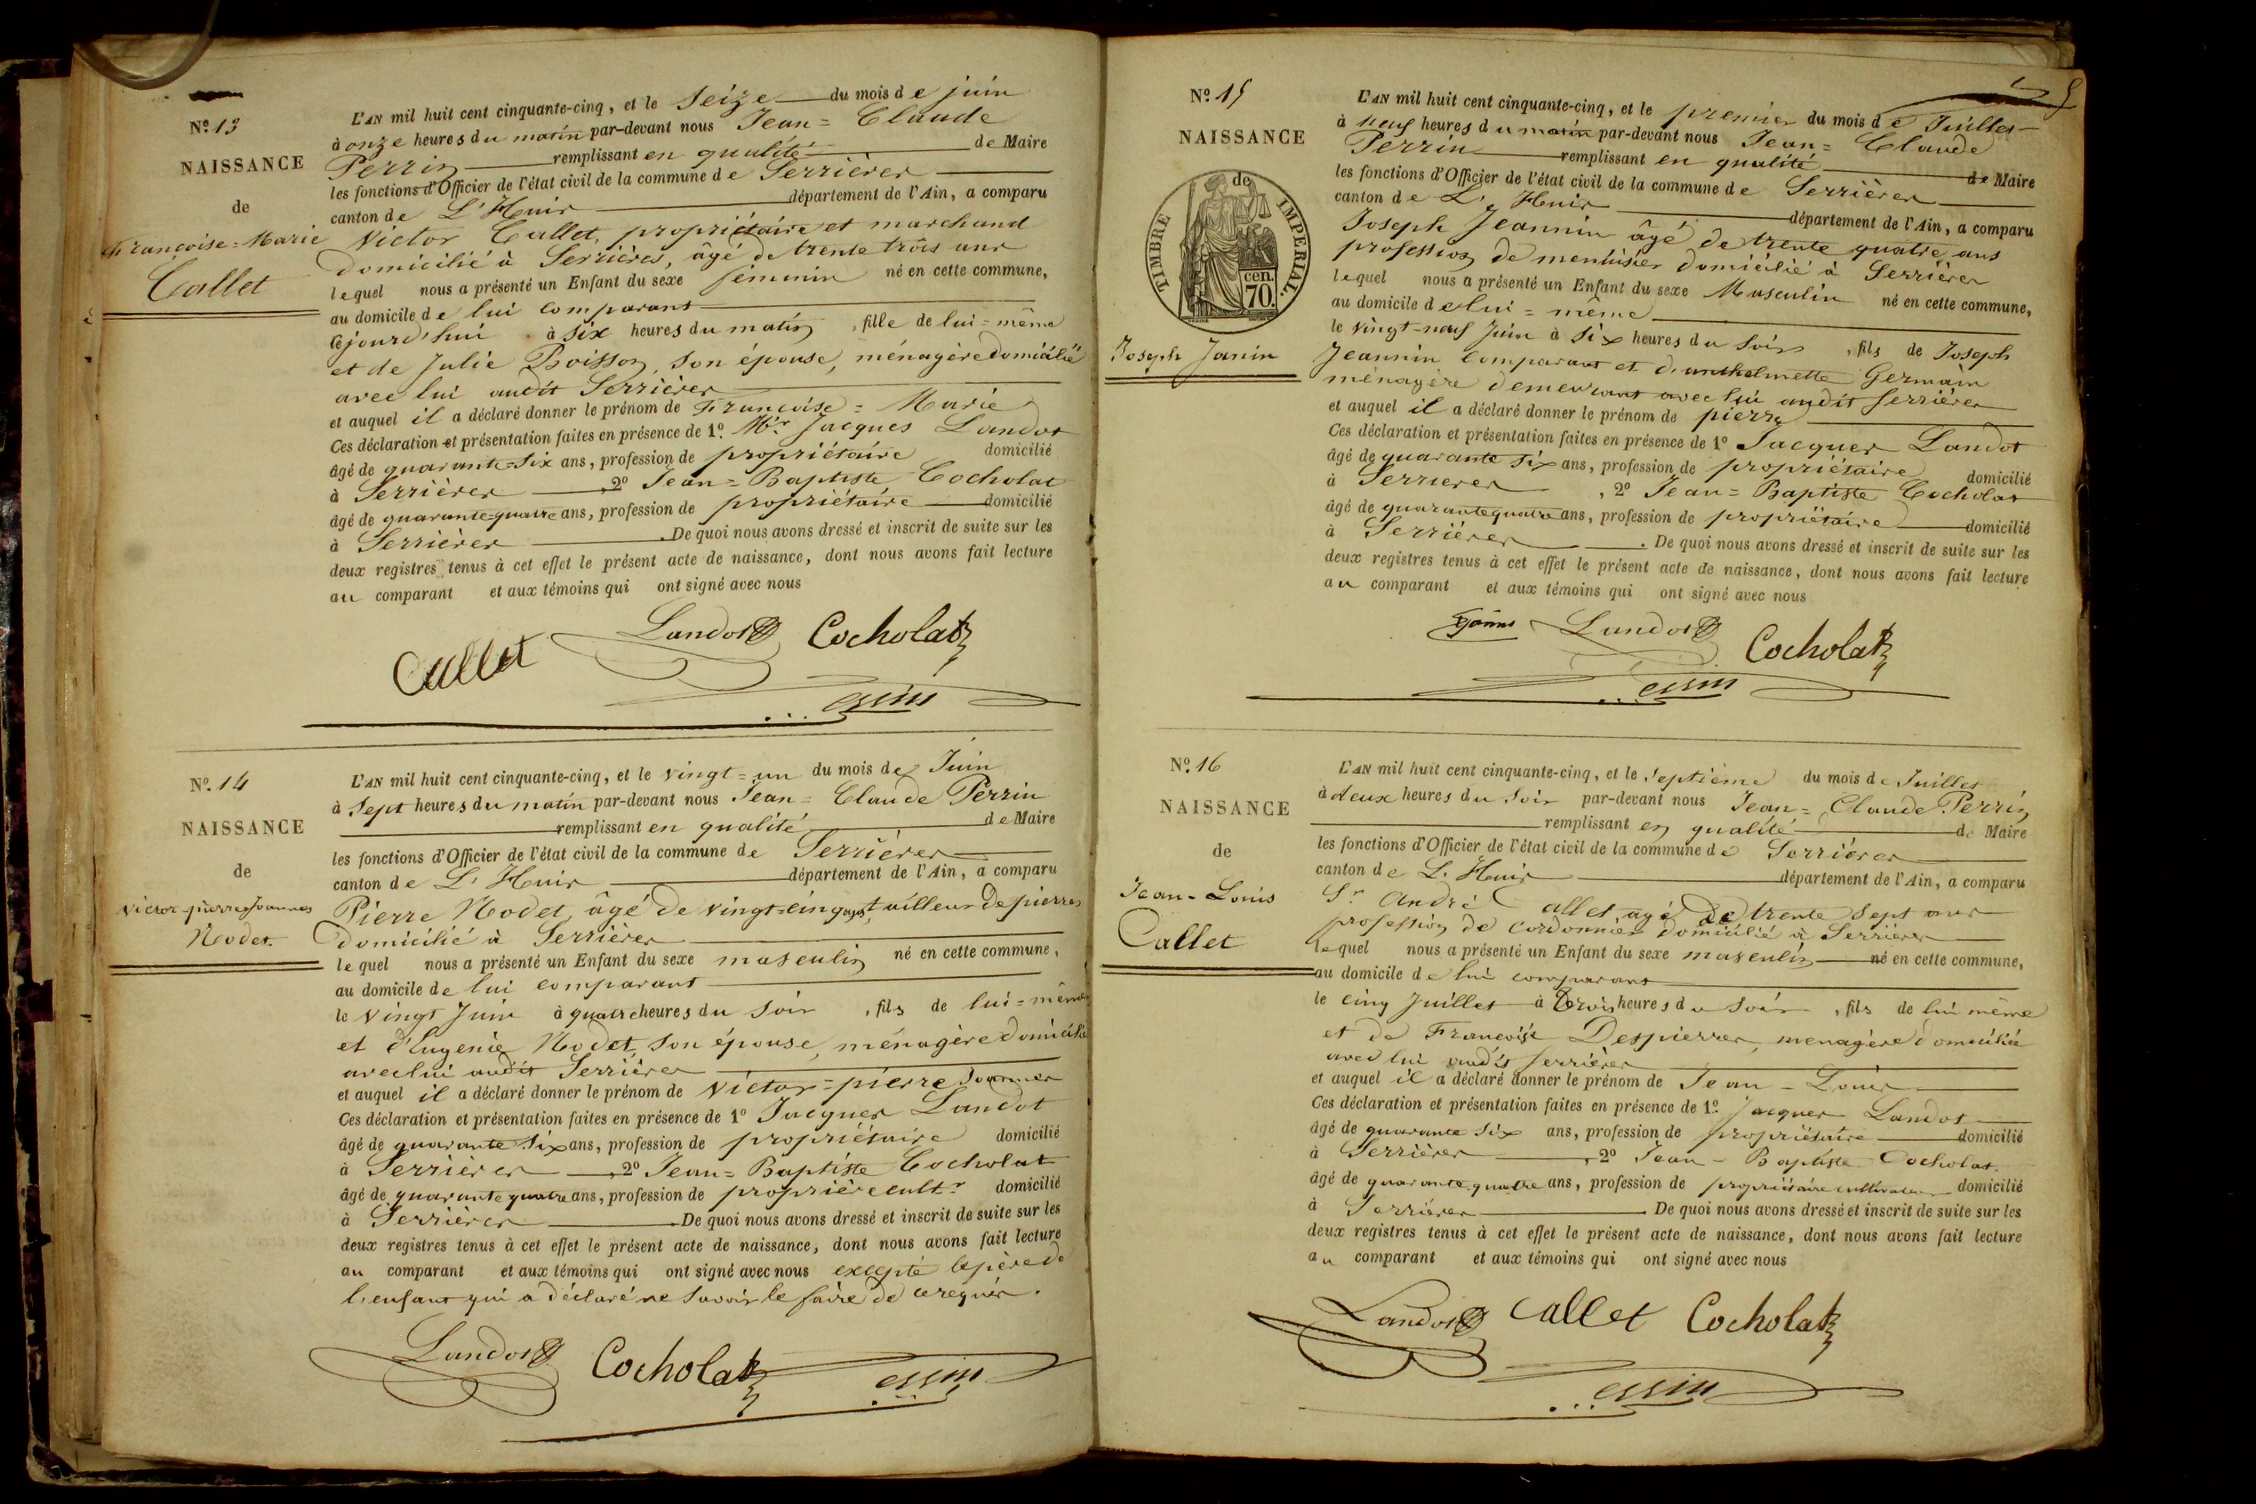 Nº 13
NAISSANCE
de
Françoise=Marie
Callet
L'AN mil huit cent cinquante-cinq, et le Seize du mois de juin
à onze heures du matin par-devant nous Jean= Claude
Perrin remplissant en qualité de Maire
les fonctions d'Officier de l'état civil de la commune de Serrières
canton de L'Huis département de l'Ain, a comparu
Victor Callet, propriétaire et marchand
domicilié à Serrières, âgé de trente trois ans
lequel nous a présenté un Enfant du sexe féminin né en cette commune,
au domicile de lui comparant
cejourd'hui à six heures du matin, fille de lui=même
et de Julie Boisson, son épouse, ménagère domiciliée
avec lui audit Serrières
et auquel il a déclaré donner le prénom de Françoise=Marie
Ces déclaration et présentation faites en présence de 1º Mr Jacques Landot
âgé de quarante-six ans, profession de propriétaire domicilié
à Serrières 2º Jean=Baptiste Cocholat
âgé de quarante-quatre ans, profession de propriétaire domicilié
à Serrières. De quoi nous avons dressé et inscrit de suite sur les
deux registres tenus à cet effet le présent acte de naissance, dont nous avons fait lecture
au comparant et aux témoins qui ont signé avec nous
Landot Cocholat
Callet
Nº 14
NAISSANCE
de
Victor-pierre Joannes
Nodet
L'AN mil huit cent cinquante-cinq, et le vingt=un du mois de Juin
à sept heures du matin par-devant nous Jean=Claude Perrin
remplissant en qualité de Maire
les fonctions d'Officier de l'état civil de la commune de Serrières
canton de L'Huis département de l'Ain, a comparu
Pierre Nodet, âgé de vingt-cinq ans, tailleur de pierres
domicilié à Serrières
lequel nous a présenté un Enfant du sexe masculin né en cette commune,
au domicile de lui comparant
le vingt Juin à quatre heures du soir, fils de lui=même
et d'Eugenie Nodet, son épouse, ménagère domiciliée
avec lui audit Serrières
et auquel il a déclaré donner le prénom de Victor=pierre Joannes
Ces déclaration et présentation faites en présence de 1º Jacques Landot
âgé de quarante six ans, profession de propriétaire domicilié
à Serrières, 2º Jean=Baptiste Cocholat
âgé de quarante quatre ans, profession de propriére cultr domicilié
à Serrières. De quoi nous avons dressé et inscrit de suite sur les
deux registres tenus à cet effet le présent acte de naissance, dont nous avons fait lecture
au comparant et aux témoins qui ont signé avec nous excepté le père de
l'enfant qui a déclaré ne savoir le faire de ce requis.
Landot Cocholat
Nº 15
NAISSANCE
de
TIMBRE IMPERIAL.
70 cen.
Joseph Janin
L'AN mil huit cent cinquante-cinq, et le premier du mois de Juillet
à neuf heures du matin par-devant nous Jean=Claude
Perrin remplissant en qualité de Maire
les fonctions d'Officier de l'état civil de la commune de Serrières
canton de L'Huis département de l'Ain, a comparu
Joseph Jeannin âgé de trente quatre ans
profession de menuisier domicilié à Serrières
lequel nous a présenté un Enfant du sexe Masculin né en cette commune,
au domicile de lui=même
le vingt-neuf Juin à six heures du soir, fils de Joseph
Jeannin comparant et d'anthelmette Germain
ménagère demeurant avec lui audit Serrières
et auquel il a déclaré donner le prénom de pierre
Ces déclaration et présentation faites en présence de 1º Jacques Landot
âgé de quarante six ans, profession de propriétaire domicilié
à Serrières, 2º Jean=Baptiste Cocholat
âgé de quarante quatre ans, profession de propriétaire domicilié
à Serrières. De quoi nous avons dressé et inscrit de suite sur les
deux registres tenus à cet effet le présent acte de naissance, dont nous avons fait lecture
au comparant et aux témoins qui ont signé avec nous
Landot Cocholat
Nº 16
NAISSANCE
de
Jean-Louis
Callet
L'AN mil huit cent cinquante-cinq, et le septième du mois de Juillet
à deux heures du soir par-devant nous Jean=Claude Perrin
remplissant en qualité de Maire
les fonctions d'Officier de l'état civil de la commune de Serrières
canton de L'Huis département de l'Ain, a comparu
Sr André Callet, âgé de trente sept ans
profession de cordonnier domicilié à Serrières
lequel nous a présenté un Enfant du sexe masculin né en cette commune,
au domicile de lui comparant
le cinq Juillet à trois heures du soir, fils de lui même
et de Françoise Despierres, menagère domiciliée
avec lui audit Serrières
et auquel il a déclaré donner le prénom de Jean-Louis
Ces déclaration et présentation faites en présence de 1º Jacques Landot
âgé de quarante six ans, profession de propriétaire domicilié
à Serrières, 2º Jean-Baptiste Cocholat
âgé de quarante-quatre ans, profession de propriétaire cultivateur domicilié
à Serrières. De quoi nous avons dressé et inscrit de suite sur les
deux registres tenus à cet effet le présent acte de naissance, dont nous avons fait lecture
au comparant et aux témoins qui ont signé avec nous
Landot Callet Cocholat